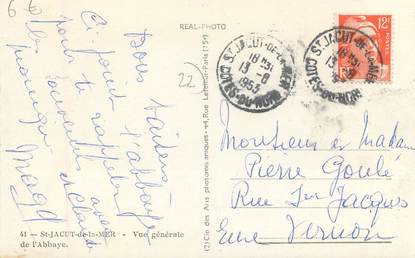 6 €
22
REAL-PHOTO
Bons baisers
de l'abbaye
Ci joint
pour te rappeler
souvenirs avec
les
Magd
41 - St-JACUT-de-la-MER - Vue générale
de l'Abbaye.
(2) Cie des Arts photomécaniques - 44, Rue Letellier - Paris (15e)
ST JACUT-DE-LA-MER
18H31
13-8
1953
COTES-DU-NORD
ST JACUT-DE-LA-MER
18H31
13-8
COTES-DU-NORD
12F
POSTES
Monsieur et Madame
Pierre Goulé
Rue St Jacques
Eure Vernon